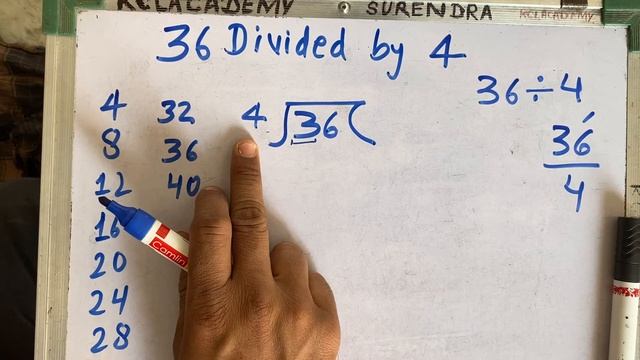 KCLACADEMY SURENDRA KCLACADEMY
36 Divided by 4
4 32
8 36
12 40
16
20
24
28
4 36
36 ÷ 4
36
4
Camlin